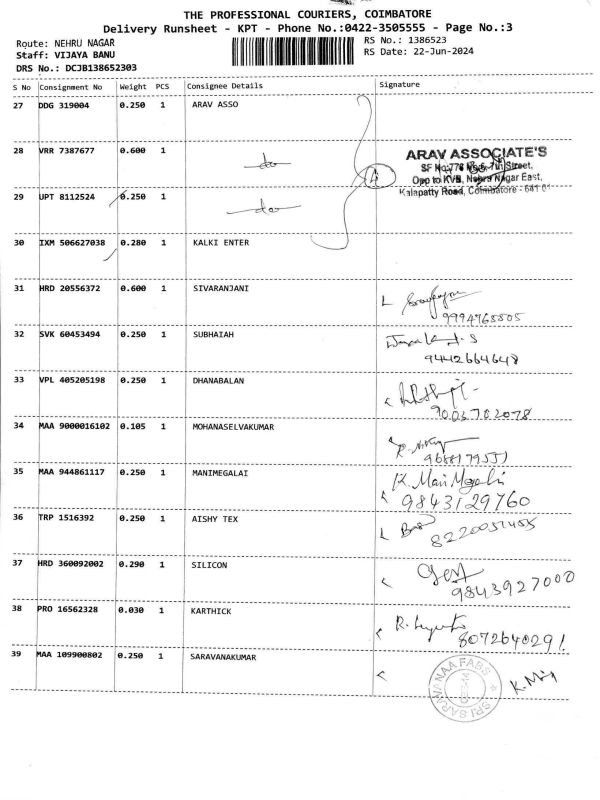 THE PROFESSIONAL COURIERS, COIMBATORE
Delivery Runsheet - KPT - Phone No.:0422-3505555 - Page No.:3
Route: NEHRU NAGAR RS No.: 1386523
Staff: VIJAYA BANU RS Date: 22-Jun-2024
DRS No.: DCJB138652303
S No Consignment No Weight PCS Consignee Details Signature
27 DDG 319004 0.250 1 ARAV ASSO
28 VRR 7387677 0.600 1 do
ARAV ASSOCIATE'S
Street,
Opp to KVB, Nehru Nagar East,
Kalapatty Road, Coimbatore - 641
29 UPT 8112524 0.250 1 do
4
30 IXM 506627038 0.280 1 KALKI ENTER
31 HRD 20556372 0.600 1 SIVARANJANI
9994765505
32 SVK 60453494 0.250 1 SUBHAIAH
9442664648
33 VPL 405205198 0.250 1 DHANABALAN
9003702078
34 MAA 9000016102 0.105 1 MOHANASELVAKUMAR
35 MAA 944861117 0.250 1 MANIMEGALAI K. Mani Megalai
9843129760
36 TRP 1516392 0.250 1 AISHY TEX
37 HRD 360092002 0.290 1 SILICON
9843927000
38 PRO 16562328 0.030 1 KARTHICK
8072640291
39 MAA 109900802 0.250 1 SARAVANAKUMAR
SRI SARAVANAA FABS